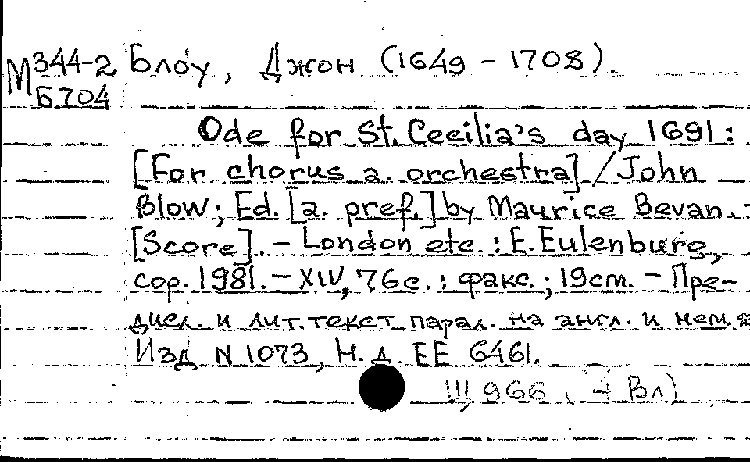 М 344-2 Блоу, Джон (1649 - 1708).
Б704
Ode for St. Cecilia's day 1691:
[For chorus a. orchestra] / John
Blow; Ed. [a. pref.] by Maurice Bevan. -
[Score]. - London etc.: E. Eulenburg,
cop. 1981. - XIV, 76 с.: факс.; 19 cm. - Пре-
дисл. и лит. текст парал. на англ. и нем. я
Изд N 1073, Н. д. EE 6461.
966